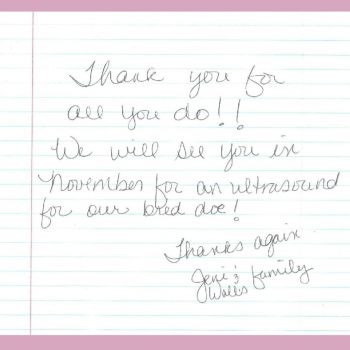 Thank you for
all you do!!
We will see you in
November for an ultrasound
for our bred doe!
Thanks again
Jeni & family
Walls